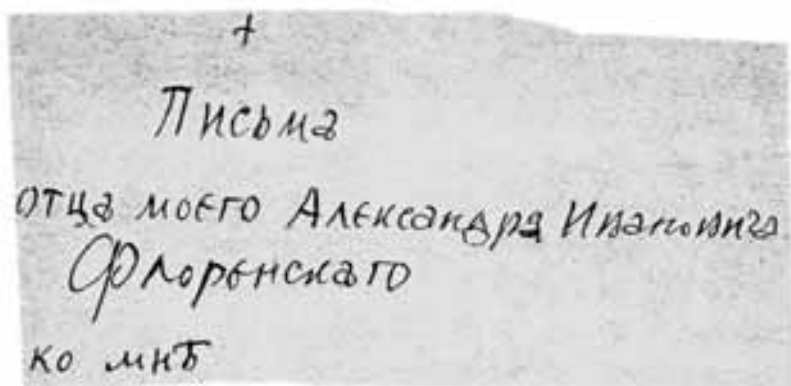 +
Письма
отца моего Александра Ивановича
Флоренскаго
ко мнѣ